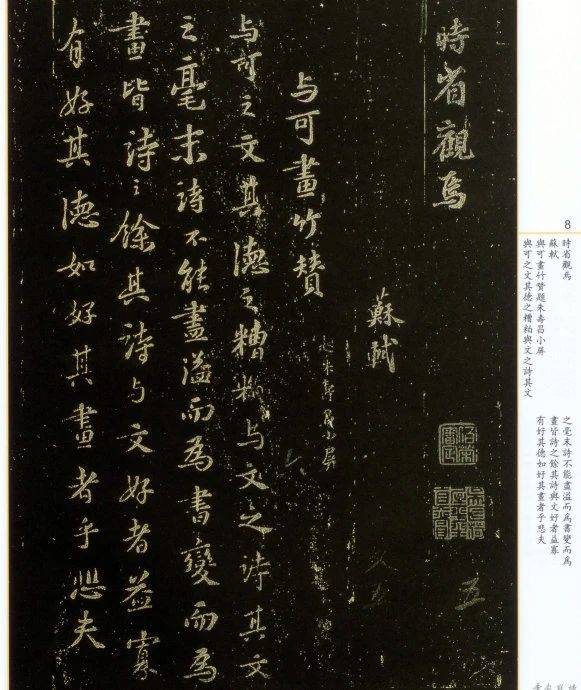 8
時省觀焉
蘇軾
與可畫竹贊題朱壽昌小屏
與可之文其德之糟粕與文之詩其文
之毫末詩不能盡溢而爲書變而爲
畫皆詩之餘其詩與文好者益寡
有好其德如好其畫者乎悲夫
時省觀焉
五
蘇軾
与可畫竹贊
題朱壽昌小屏
与可之文其德之糟粕与文之詩其文
之毫末詩不能盡溢而為書變而為
畫皆詩之餘其詩与文好者益寡
有好其德如好其畫者乎悲夫